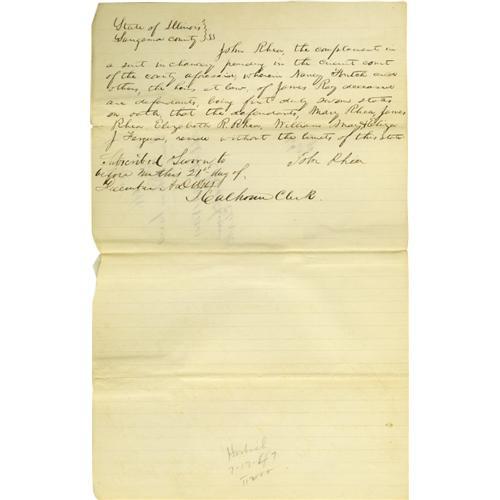 State of Illinois }
Sangamo county } SS
John Rhea, the complainant in
a suit in chancery pending in the circuit court
of the county aforesaid, wherein Nancy and
others, the heirs at law, of James Ray deceased
are defendants, being first duly sworn states
on oath, that the defendants, Mary Rhea, James
Rhea, Elizabeth R. Rhea, William
J Ferguson, reside without the limits of this state
Subscribed & sworn to
before me this 21st day of
December AD
John Rhea
N Calhoun Clerk.
7-17-47